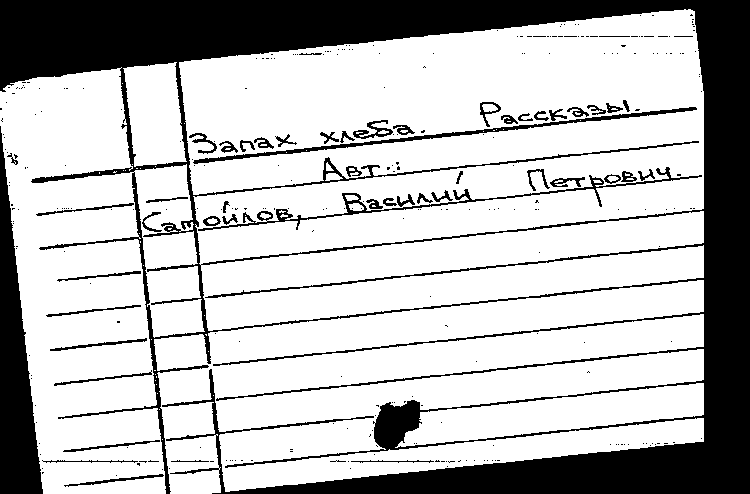 Запах хлеба. Рассказы.
Авт.:
Самойлов, Василий Петрович.